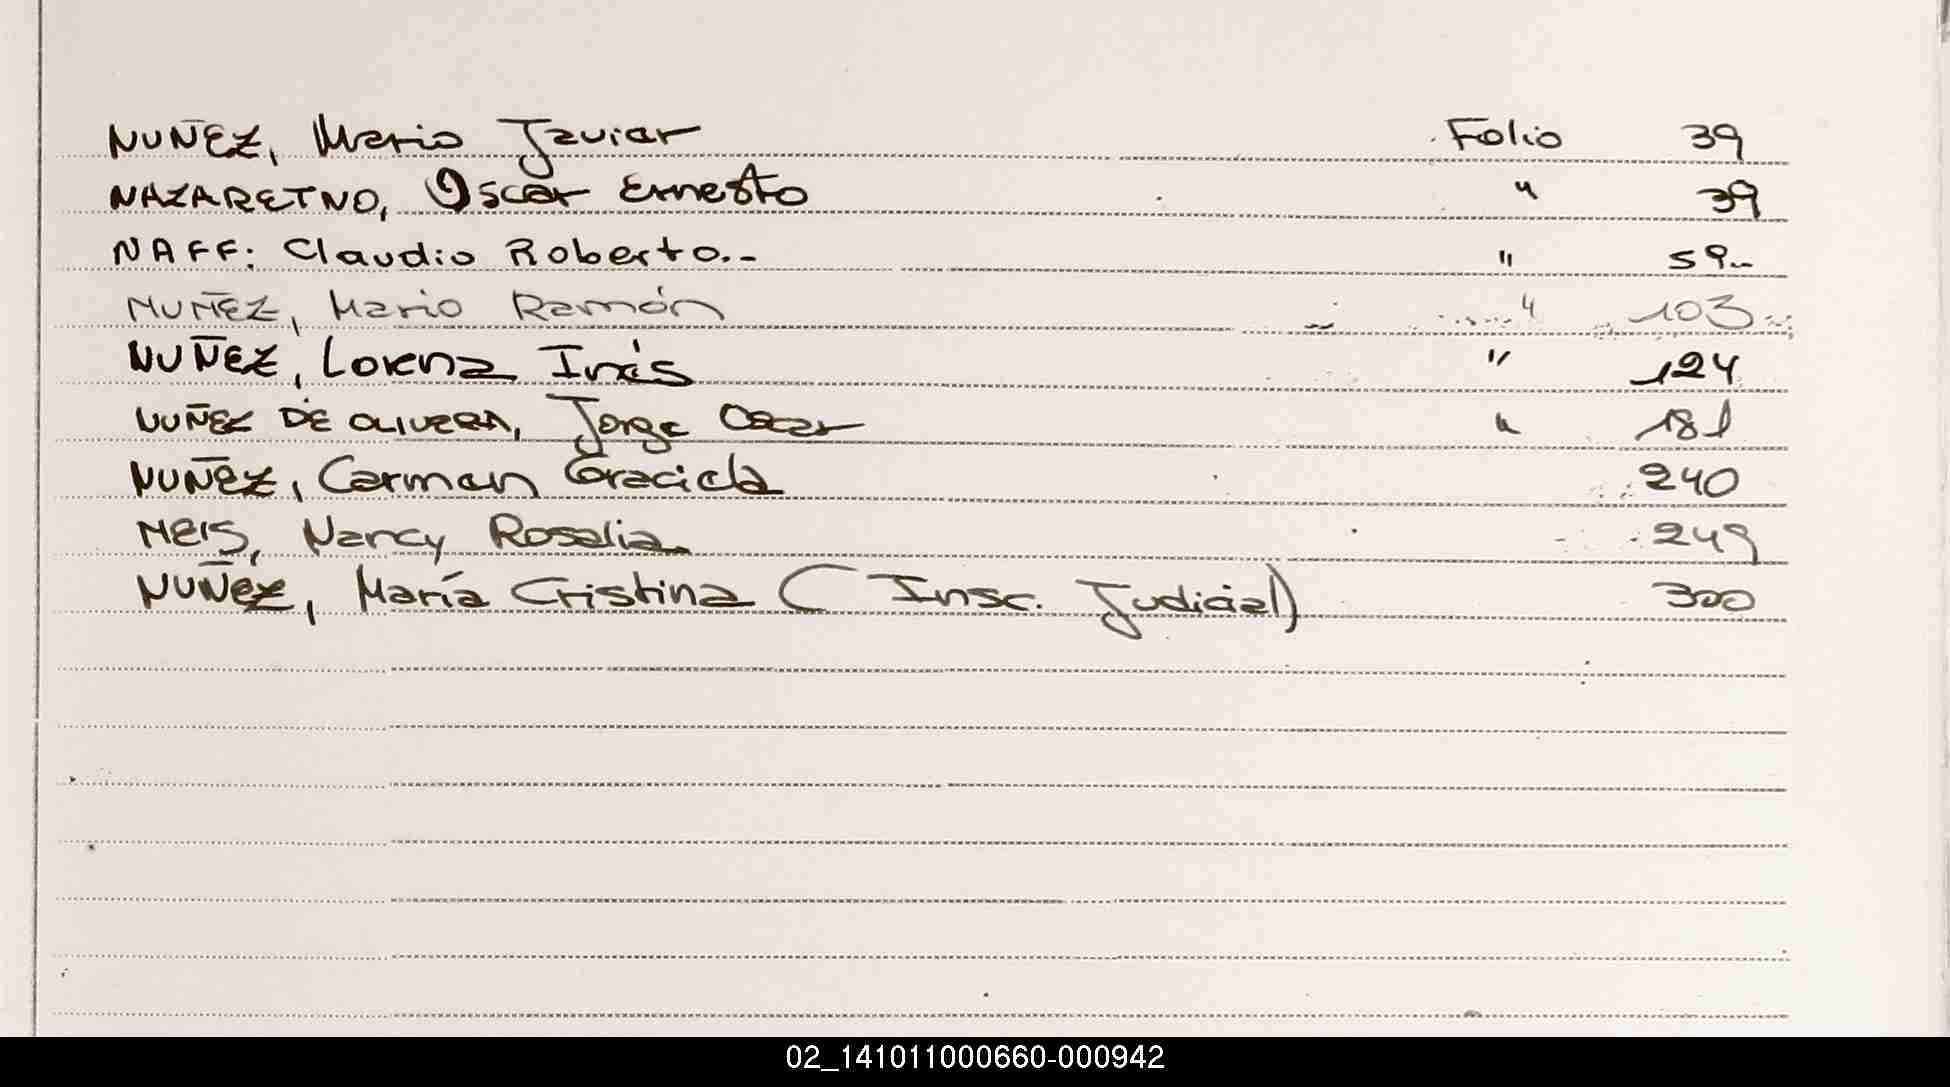 NUÑEZ, Mario Javier Folio 39
NAZARETNO, Oscar Ernesto " 39
NAFF: Claudio Roberto.- " 59-
NUÑEZ, Mario Ramón " 103
NUÑEZ, Lorena Inés " 124
NUÑEZ DE OLIVERA, Jorge Oscar " 181
NUÑEZ, Carmen Graciela 240
NEIS, Nancy Rosalia 249
NUÑEZ, María Cristina (Insc. Judicial) 300
02_141011000660-000942